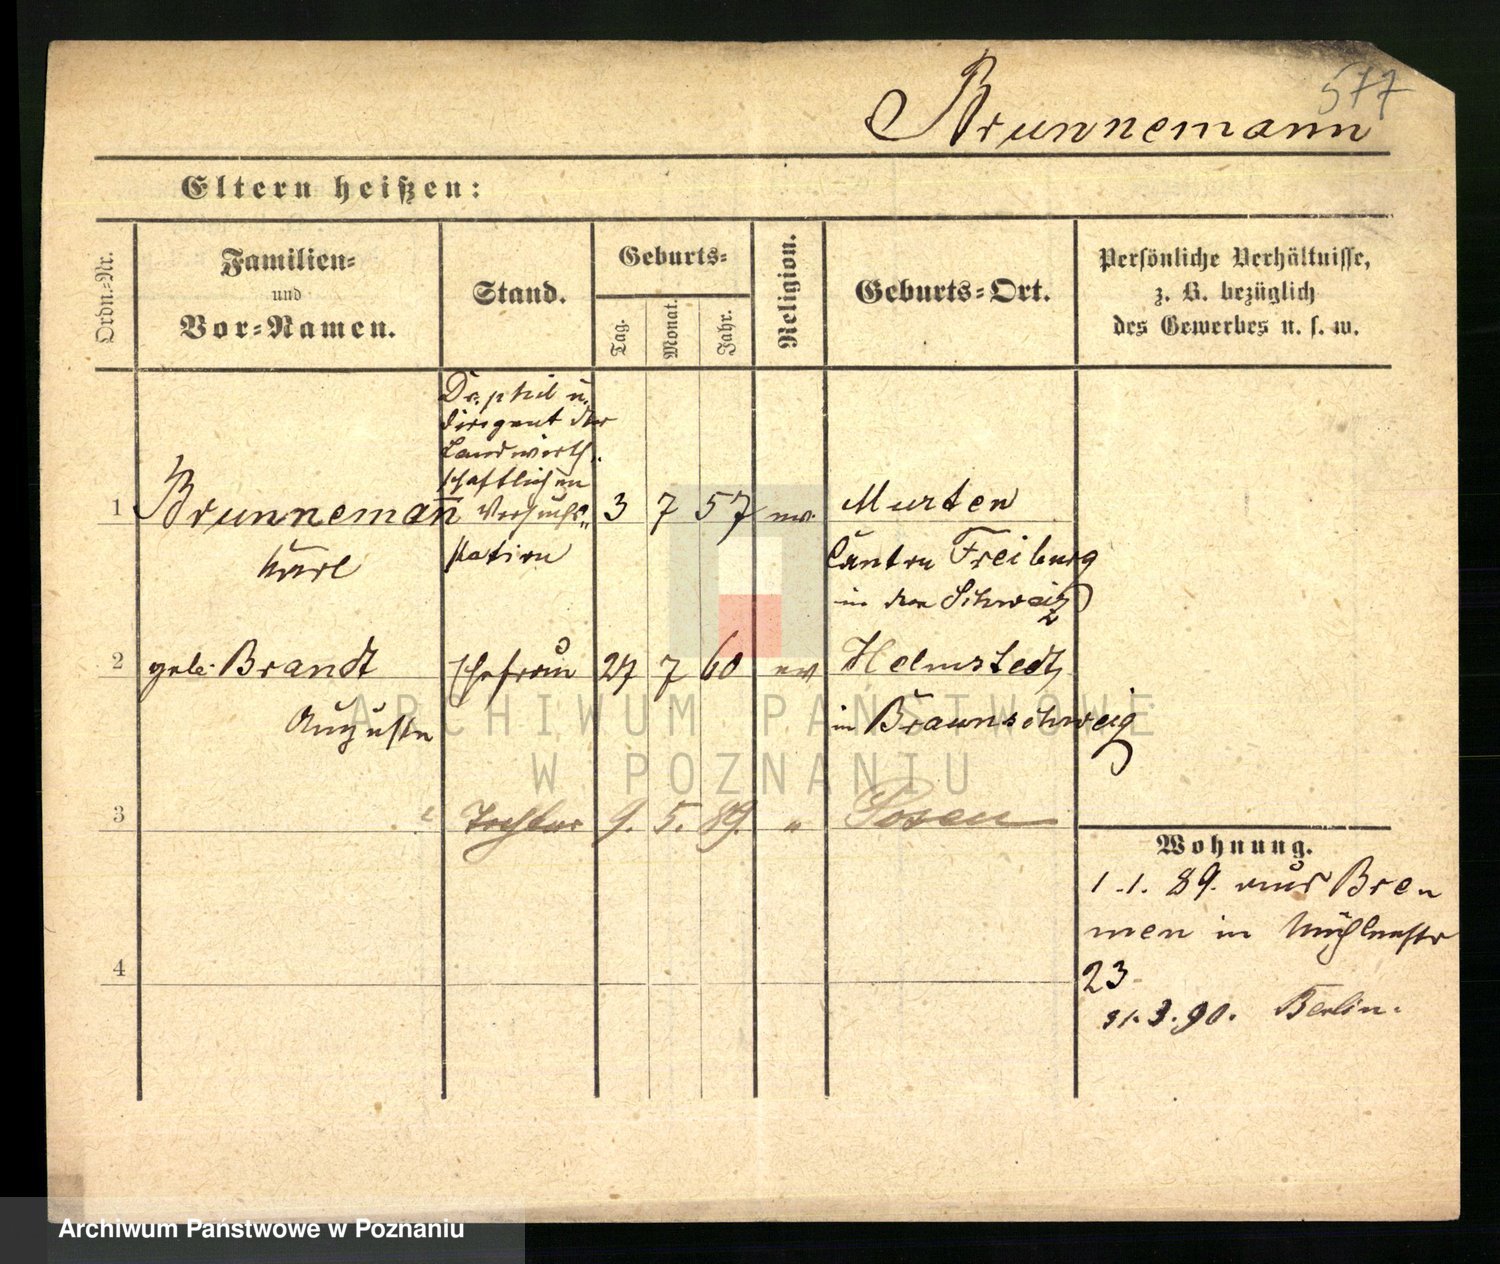 577
Brunnemann
Eltern heißen:
Ordn.-Nr.
Familien-
und
Vor-Namen.
Stand.
Geburts-
Tag.
Monat.
Jahr.
Religion.
Geburts-Ort.
Persönliche Verhältnisse,
z. B. bezüglich
des Gewerbes u. s. w.
Dr. phil u.
Dirigent der
Landwirth-
schaftlichen
1 Brunnemann Versuchs- 3 7 57 ev. Murten
Karl station Canton Freiburg
in der Schweiz
2 geb. Brandt Ehefrau 27 7 60 ev Helmstedt
Auguste in Braunschweig
3 Tochter 9. 5. 89. " Posen
4
Wohnung.
1.1. 89. aus Bre
men in Mühlenstr
23
31.3.90. Berlin.
ARCHIWUM PAŃSTWOWE
W POZNANIU
Archiwum Państwowe w Poznaniu